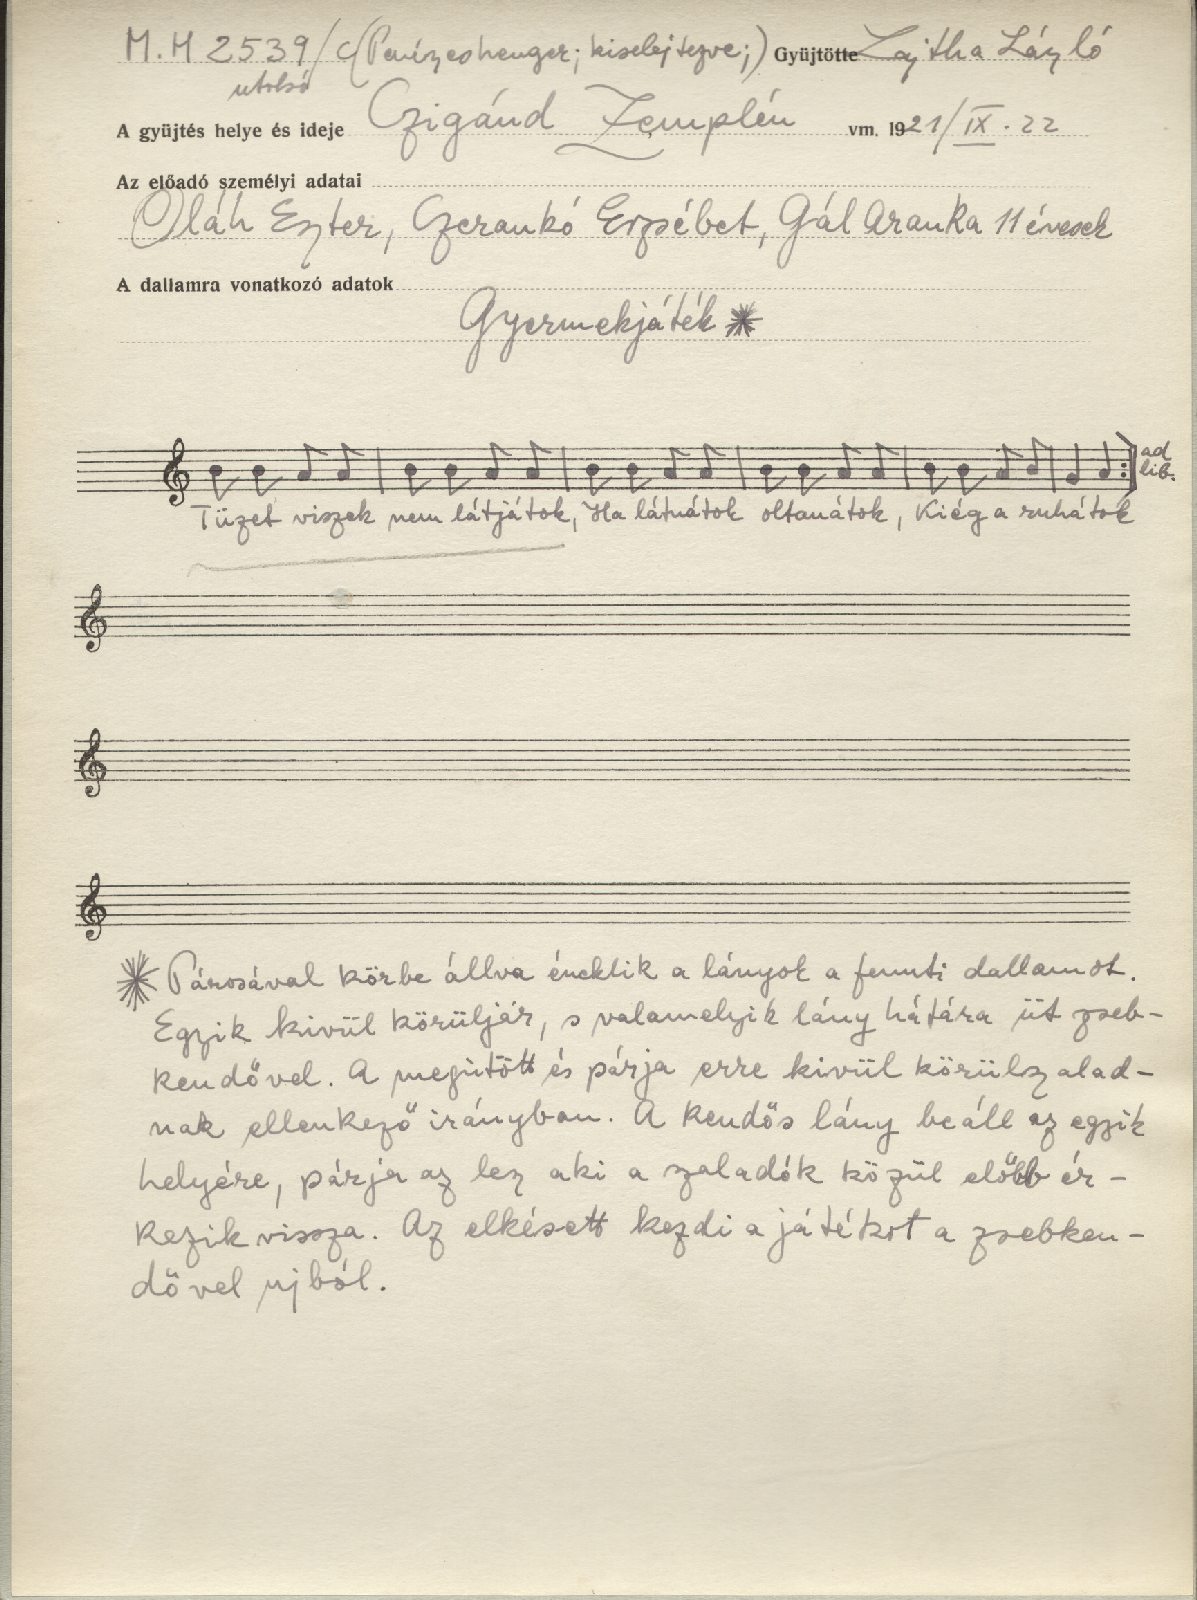 M.H 2539/c (Penészes henger; kiselejtezve;) Gyüjtötte Lajtha László
utolsó
A gyüjtés helye és ideje Czigánd Zemplén vm. 1921/IX. 22
Az előadó személyi adatai
Oláh Eszter, Czerankó Erzsébet, Gál Aranka 11 évesek
A dallamra vonatkozó adatok
Gyermekjáték *
ad
lib.
Tüzet viszek nem látjátok, Ha látnátok oltanátok, Kiég a ruhátok
* Párosával körbe állva éneklik a lányok a fennti dallamot.
Egyik kivül körüljár, s valamelyik lány hátára üt zseb-
kendővel. A megütött és párja erre kivül körülszalad-
nak ellenkező irányban. A kendős lány beáll az egyik
helyére, párja az lesz aki a szaladók közül előbb ér-
kezik vissza. Az elkésett kezdi a játékot a zsebken-
dővel ujból.